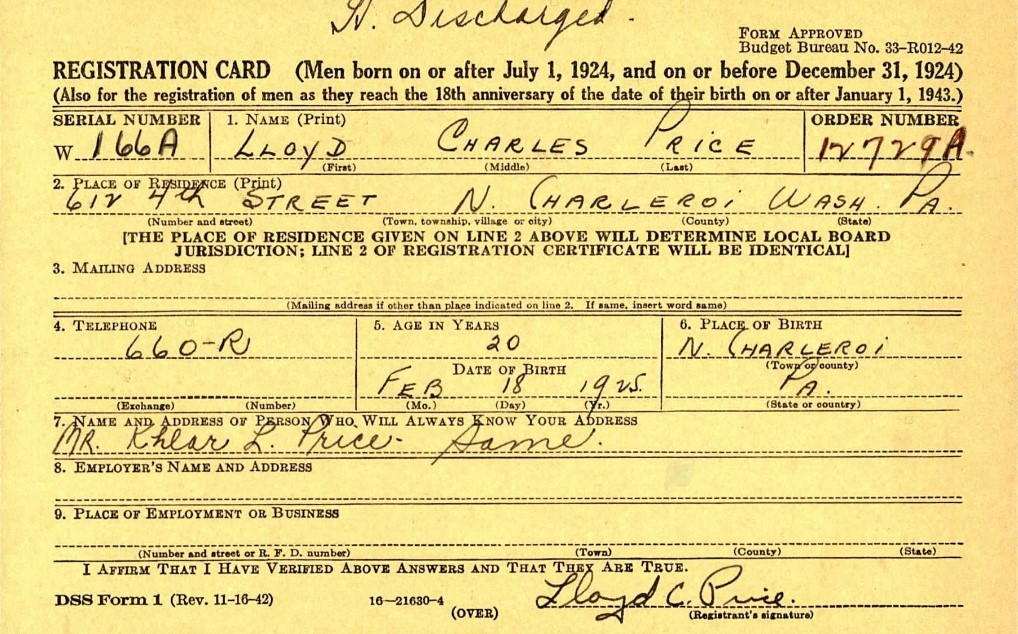 H. Discharged.
FORM APPROVED
Budget Bureau No. 33–R012–42
REGISTRATION CARD (Men born on or after July 1, 1924, and on or before December 31, 1924)
(Also for the registration of men as they reach the 18th anniversary of the date of their birth on or after January 1, 1943.)
SERIAL NUMBER 1. NAME (Print) ORDER NUMBER
W 166A LLOYD CHARLES PRICE 12729A
(First) (Middle) (Last)
2. PLACE OF RESIDENCE (Print)
612 4th STREET N. CHARLEROI WASH. PA.
(Number and street) (Town, township, village or city) (County) (State)
[THE PLACE OF RESIDENCE GIVEN ON LINE 2 ABOVE WILL DETERMINE LOCAL BOARD
JURISDICTION; LINE 2 OF REGISTRATION CERTIFICATE WILL BE IDENTICAL]
3. MAILING ADDRESS
(Mailing address if other than place indicated on line 2. If same, insert word same)
4. TELEPHONE 5. AGE IN YEARS 6. PLACE OF BIRTH
660-R 20 N. CHARLEROI
(Town or county)
DATE OF BIRTH
FEB 18 1925. PA.
(Exchange) (Number) (Mo.) (Day) (Yr.) (State or country)
7. NAME AND ADDRESS OF PERSON WHO WILL ALWAYS KNOW YOUR ADDRESS
MR. Khlar L. Price- Same.
8. EMPLOYER'S NAME AND ADDRESS
9. PLACE OF EMPLOYMENT OR BUSINESS
(Number and street or R. F. D. number) (Town) (County) (State)
I AFFIRM THAT I HAVE VERIFIED ABOVE ANSWERS AND THAT THEY ARE TRUE.
DSS Form 1 (Rev. 11-16-42) 16—21630-4 Lloyd C. Price.
(OVER) (Registrant's signature)